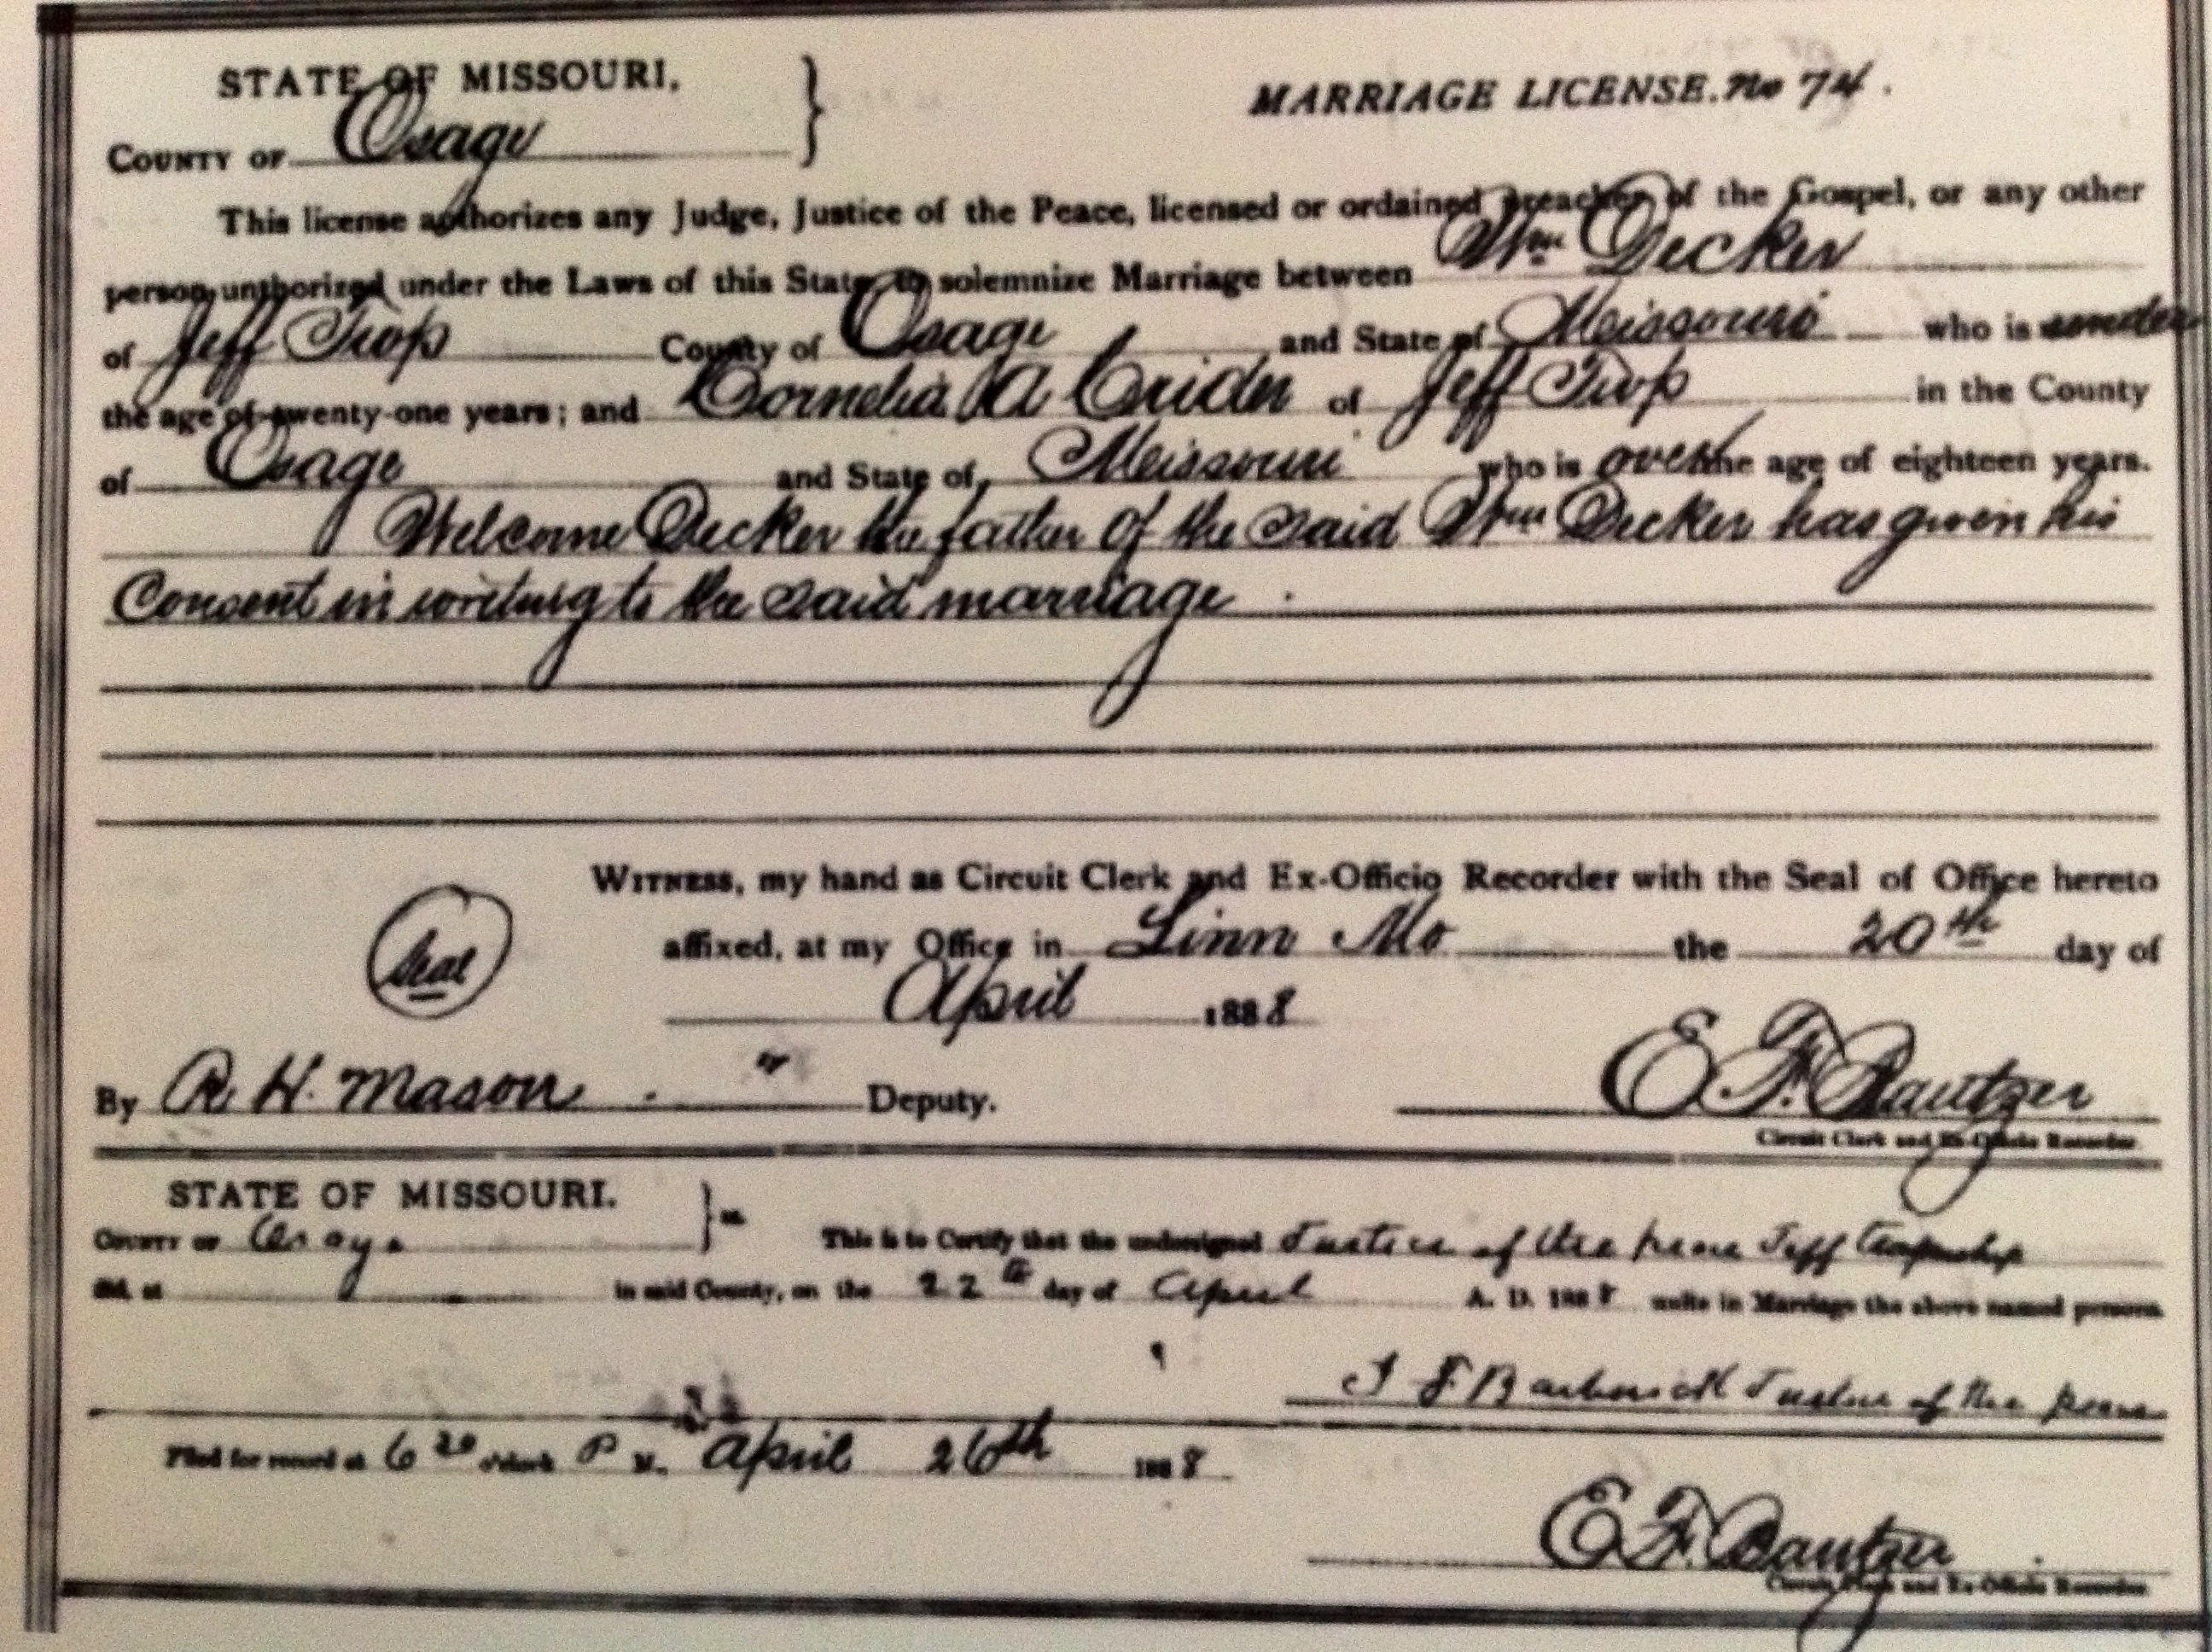 STATE OF MISSOURI,
MARRIAGE LICENSE. No 74.
COUNTY OF Osage
This license authorizes any Judge, Justice of the Peace, licensed or ordained preacher of the Gospel, or any other
person unthorized under the Laws of this State to solemnize Marriage between Wm Decker
of Jeff Twp County of Osage and State of Missouri who is under
the age of twenty-one years; and Cornelia A Crider of Jeff Twp in the County
of Osage and State of Missouri who is over the age of eighteen years.
Welcome Decker the father of the said Wm Decker has given his
Consent in writing to the said marriage.
WITNESS, my hand as Circuit Clerk and Ex-Officio Recorder with the Seal of Office hereto
Seal
affixed, at my Office in Linn Mo the 20th day of
April 1888
By R. H. Mason Deputy.
E. F.
Circuit Clerk and Ex-Officio Recorder
STATE OF MISSOURI.
COUNTY OF Osage This is to Certify that the undersigned Justice of the peace Jeff
did, at in said County, on the 22th day of April A. D. 1888 unite in Marriage the above named persons
Justice of the peace
Filed for record at 6 20 o'clock P M. April 26th 1888
E. F.
Circuit Clerk and Ex-Officio Recorder